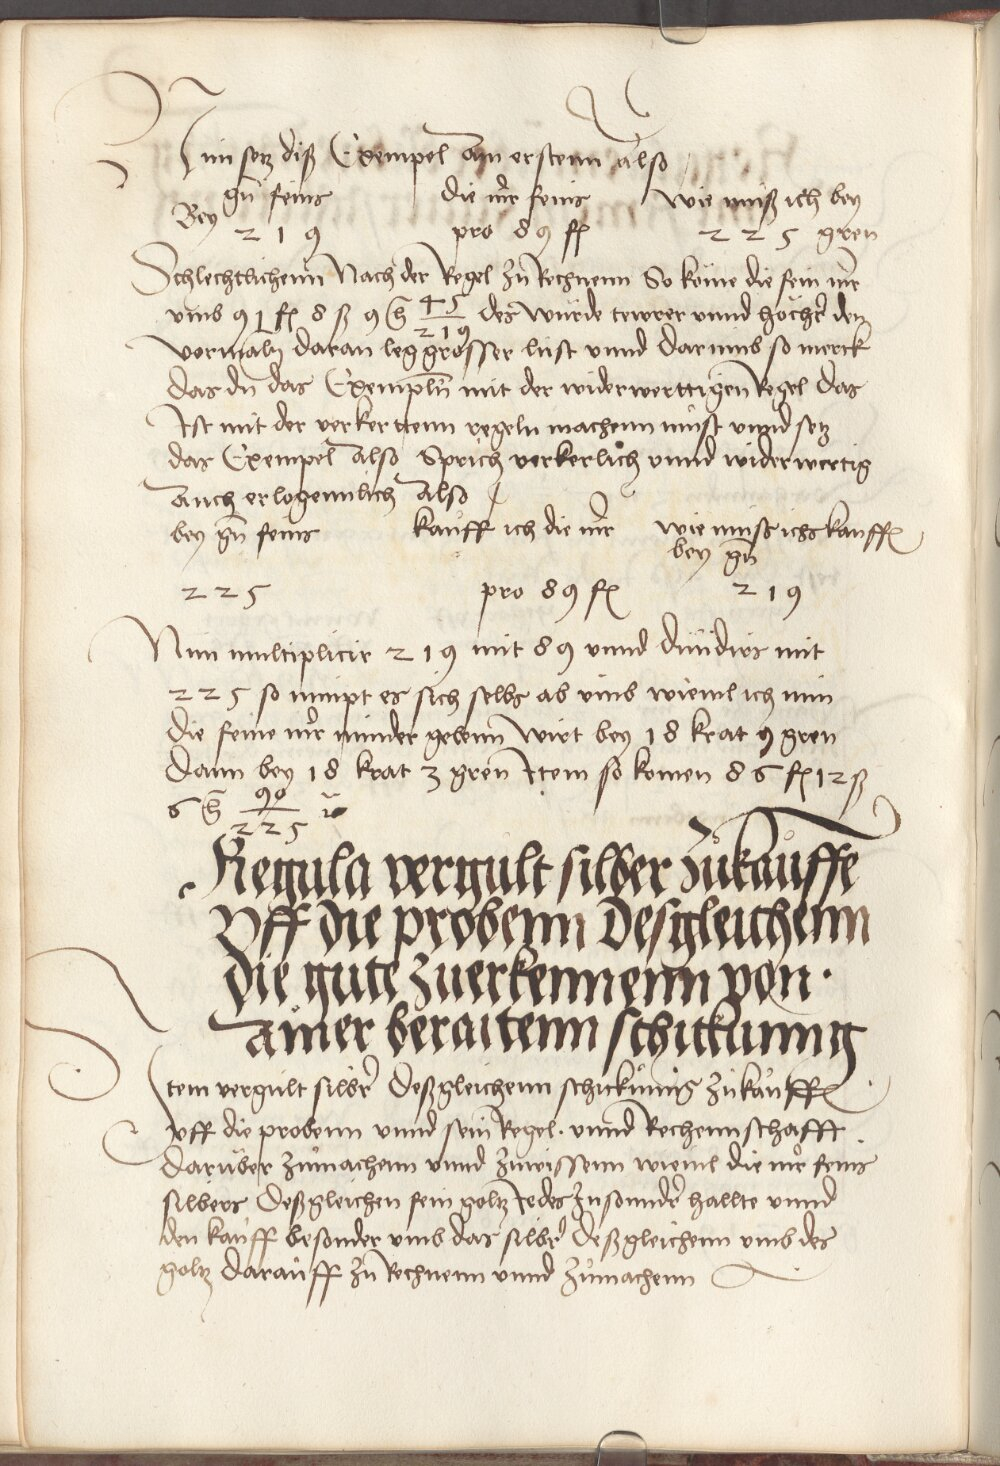 Nun setz diß Exempel Am erstenn also
Bey gñ feins die mr̃ feins wie muß ich bey
2 1 9 pro 89 fl 2 2 5 gren
Schlechtlichenn Nach der Regel zu Rechnenn So kome die fein mr̃
vmb 91 fl 8 ß 9 45/219 des würde tewrer vnnd höcher den
vormaln daran leg grosser lust vnnd darumb so merck
das du das Exempln mit der widerwerttigen Regel das
Ist mit der verkerttenn regeln machenn must vnnd setz
das Exempel also Sprich verkerlich vnnd widerwertig
auch erlogennlich also
bey gñ feins kauff ich die mr̃ wie muß ichs kauffen
bey gñ
2 2 5 pro 89 fl 2 1 9
Nun multiplicir 2 1 9 mit 89 vnnd diuidirs mit
2 2 5 so nimpt es sich selbs ab vmb wieuil ich nun
die feine mr̃ minder gebenn wirt bey 18 krat 9 gren
dann bey 18 krat 3 gren Item so komen 86 fl 12 ß
6 90/225
Regula vergult silber zukauffē
Vff die probenn Desgleichenn
die gute zuerkennenn von
ainer beraitenn schickunng
Item vergult silbr̃ deßgleichenn schickunng zukauffen
vff die probenn vnnd sein Regel. vnnd Rechennschafft
daruber zumachenn vnnd zuwissenn wieuil die mr̃ feins
silbers deßgleichen fein goltz Jedes Insonnder̃ hallte vnnd
den kauff besonder vmb das silbr̃ deßgleichenn vmb des
goltz darauff zu Rechnenn vnnd zumachenn